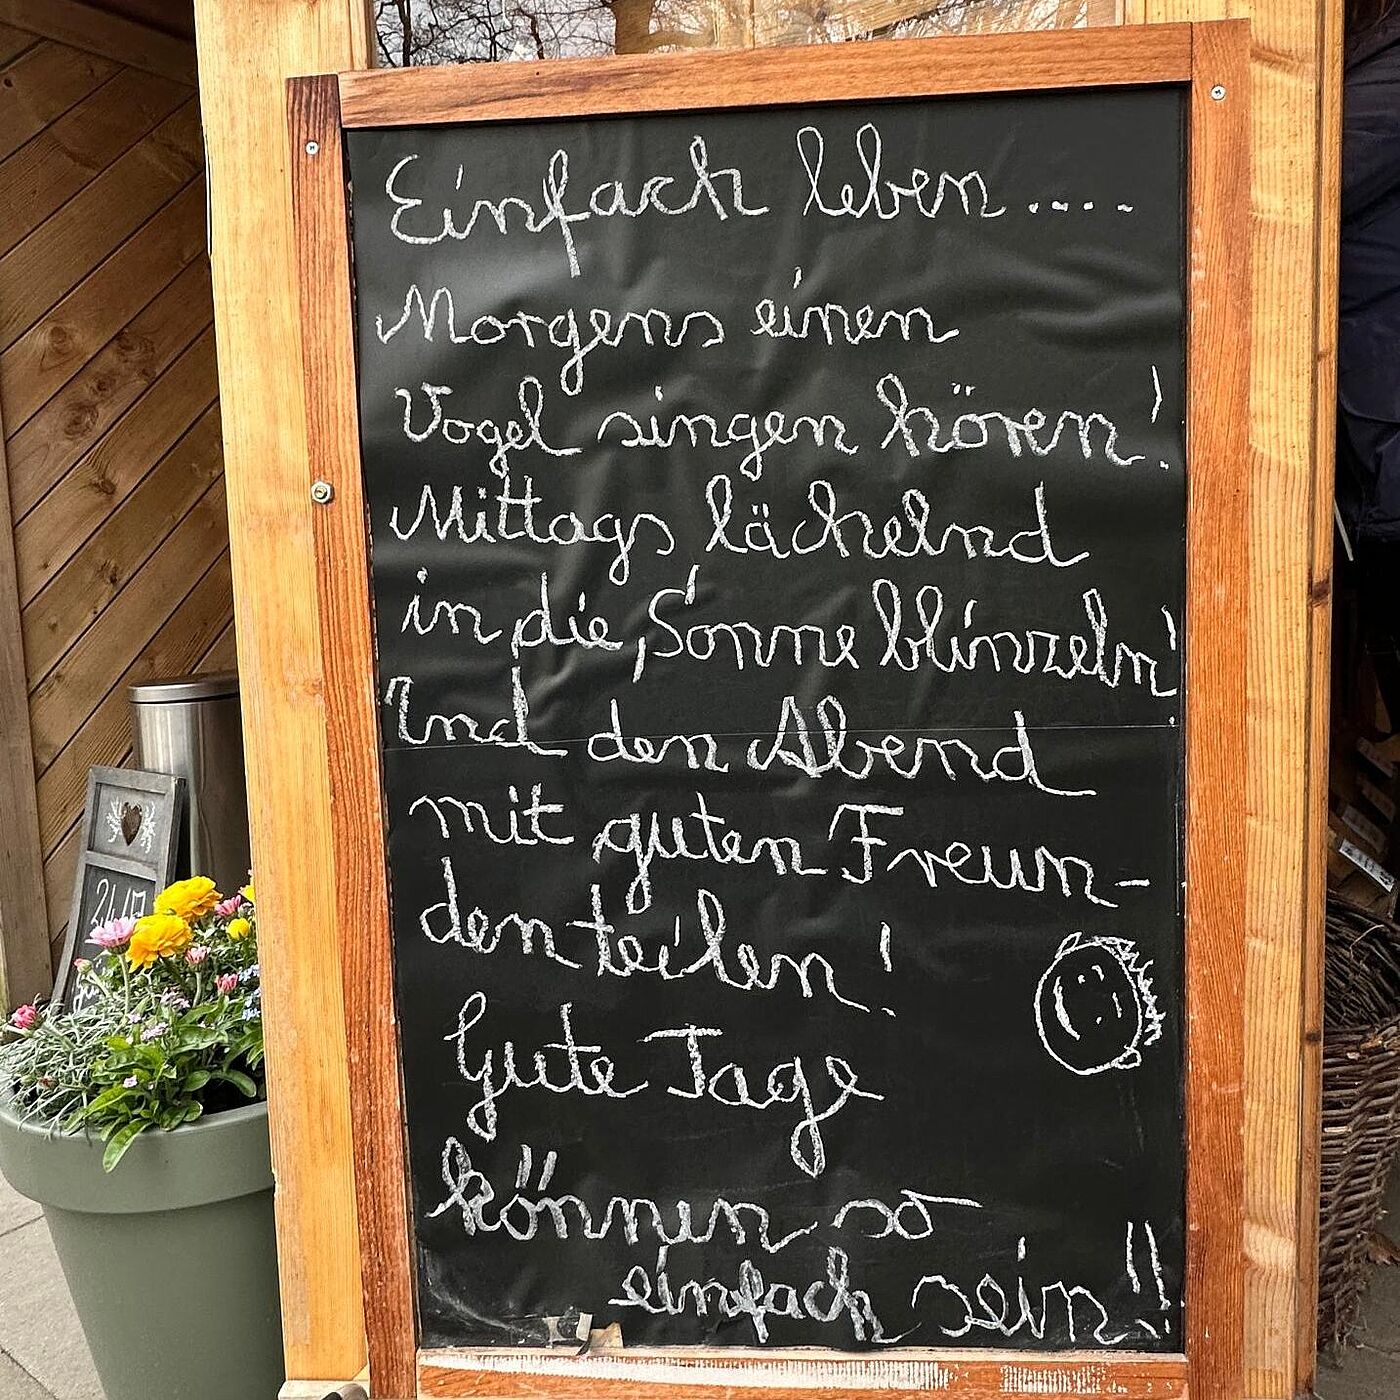 Einfach leben....
Morgens einen
Vogel singen hören!
Mittags lächelnd
in die Sonne blinzeln!
Und den Abend
mit guten Freun-
den teilen!
Gute Tage
können so
einfach sein!!